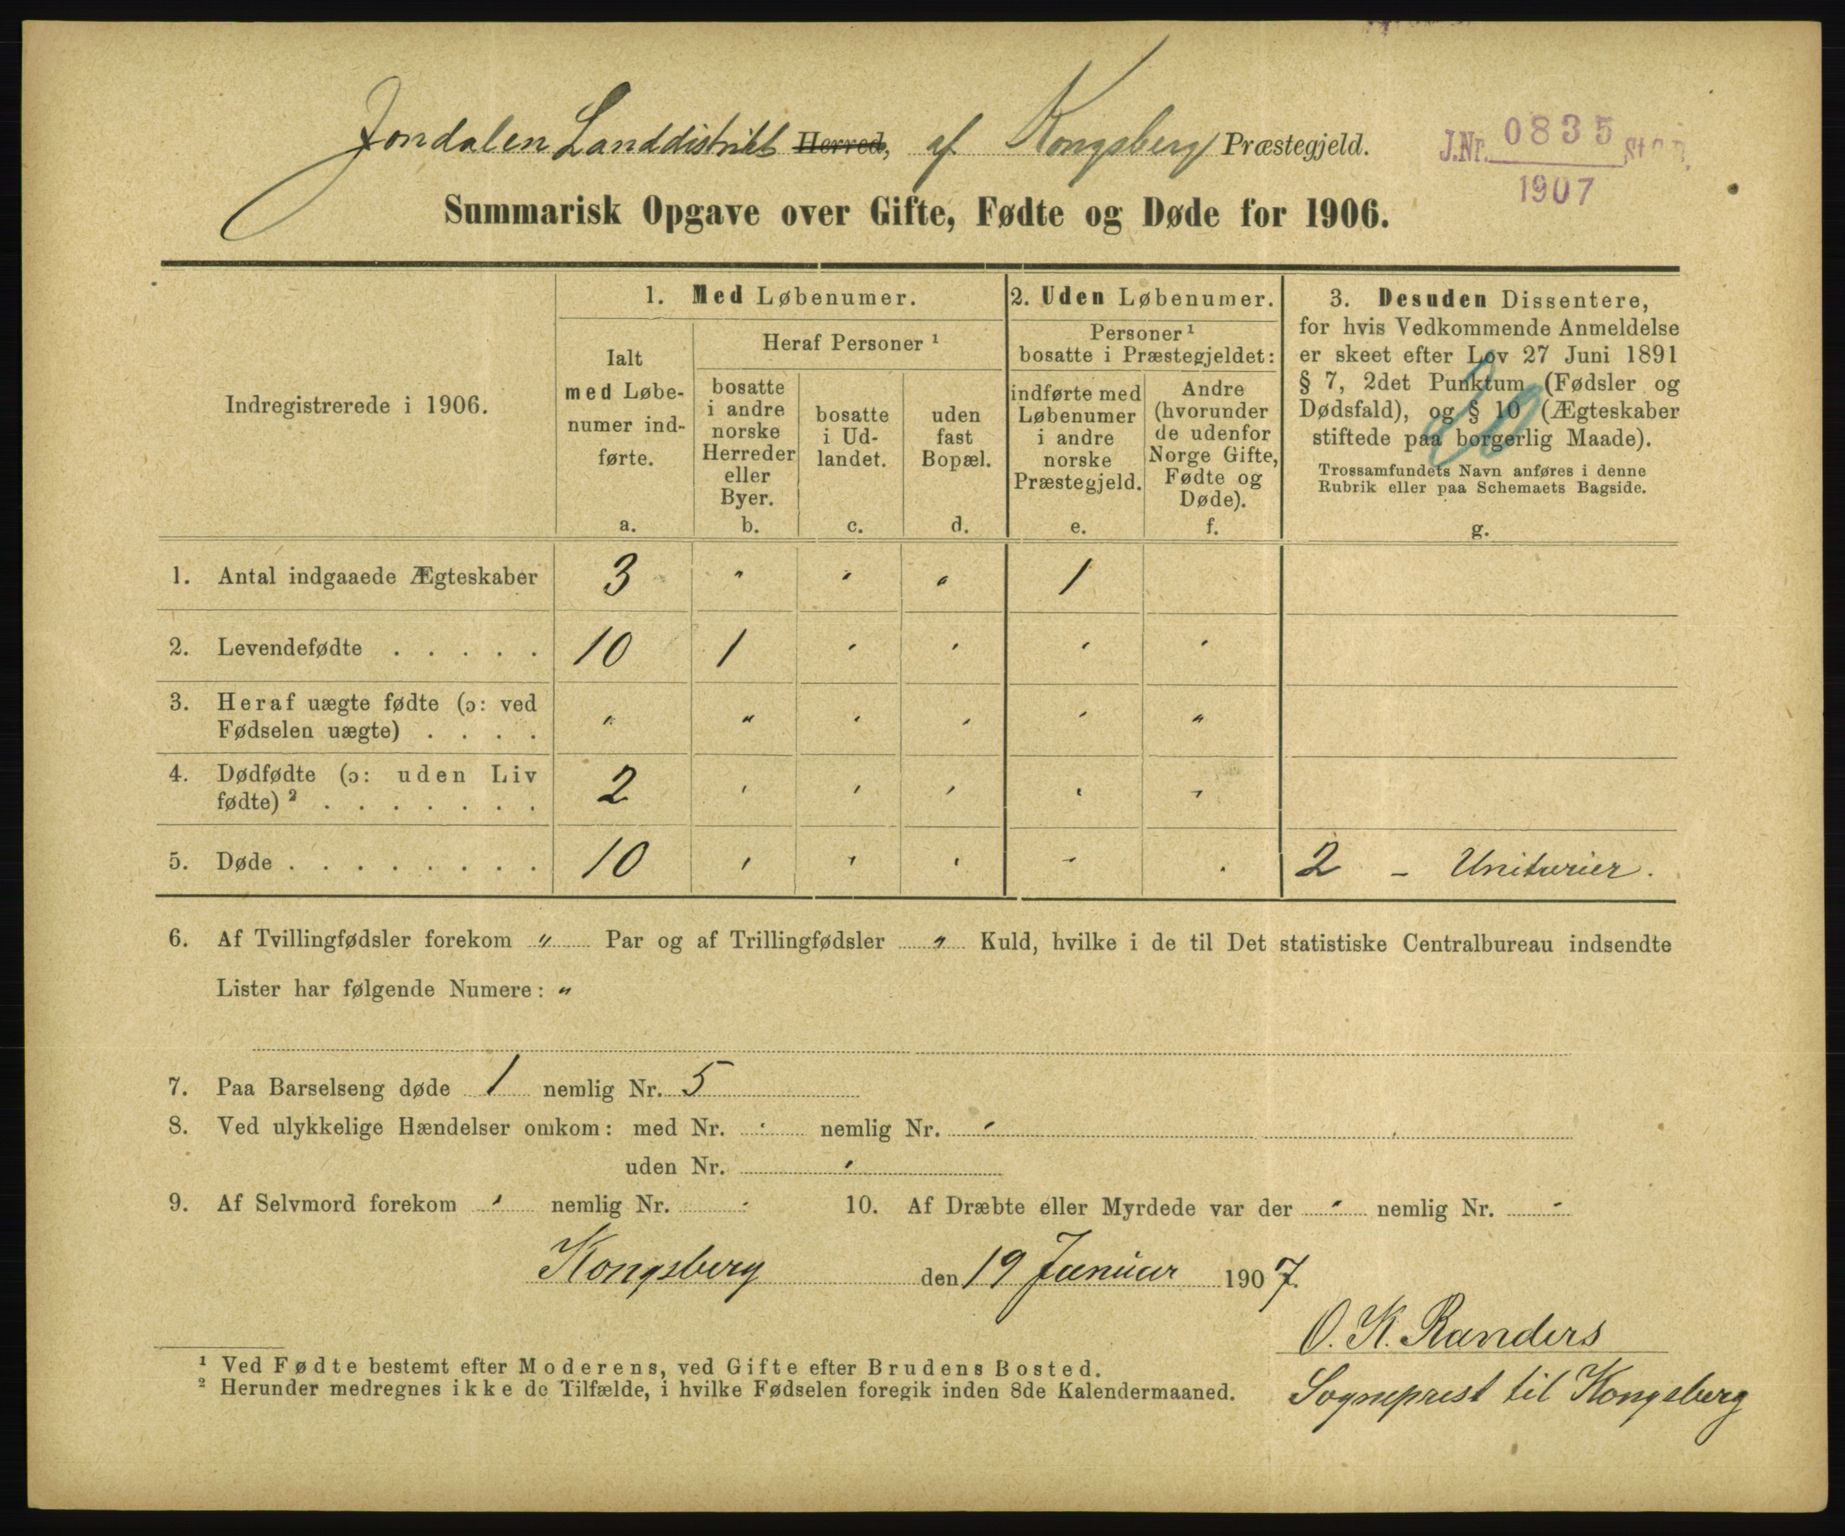 Jondalen Landdistrikt Herred, af Kongsberg Præstegjeld.
J.Nr. 0835 St.C.B.
1907
Summarisk Opgave over Gifte, Fødte og Døde for 1906.
Indregistrerede i 1906.
1. Med Løbenumer.
Ialt med Løbenumer indførte.
a.
Heraf Personer ¹
bosatte i andre norske Herreder eller Byer.
b.
bosatte i Udlandet.
c.
uden fast Bopæl.
d.
2. Uden Løbenumer.
Personer ¹
bosatte i Præstegjeldet:
indførte med Løbenumer i andre norske Præstegjeld.
e.
Andre (hvorunder de udenfor Norge Gifte, Fødte og Døde).
f.
3. Desuden Dissentere,
for hvis Vedkommende Anmeldelse
er skeet efter Lov 27 Juni 1891
§ 7, 2det Punktum (Fødsler og
Dødsfald), og § 10 (Ægteskaber
stiftede paa borgerlig Maade).
Trossamfundets Navn anføres i denne
Rubrik eller paa Schemaets Bagside.
g.
1. Antal indgaaede Ægteskaber 3 " " " 1
2. Levendefødte . . . . . 10 1 " " " "
3. Heraf uægte fødte (ɔ: ved
Fødselen uægte) . . . . " " " " " "
4. Dødfødte (ɔ: uden Liv
fødte) ² . . . . . . . 2 " " " " "
5. Døde . . . . . . . . 10 " " " " " 2 - Unitarier.
6. Af Tvillingfødsler forekom " Par og af Trillingfødsler " Kuld, hvilke i de til Det statistiske Centralbureau indsendte
Lister har følgende Numere: "
7. Paa Barselseng døde 1 nemlig Nr. 5
8. Ved ulykkelige Hændelser omkom: med Nr. " nemlig Nr. "
uden Nr. "
9. Af Selvmord forekom " nemlig Nr. " 10. Af Dræbte eller Myrdede var der " nemlig Nr. "
Kongsberg den 19 Januar 1907.
O. K. Randers
Sogneprest til Kongsberg
¹ Ved Fødte bestemt efter Moderens, ved Gifte efter Brudens Bosted.
² Herunder medregnes ikke de Tilfælde, i hvilke Fødselen foregik inden 8de Kalendermaaned.